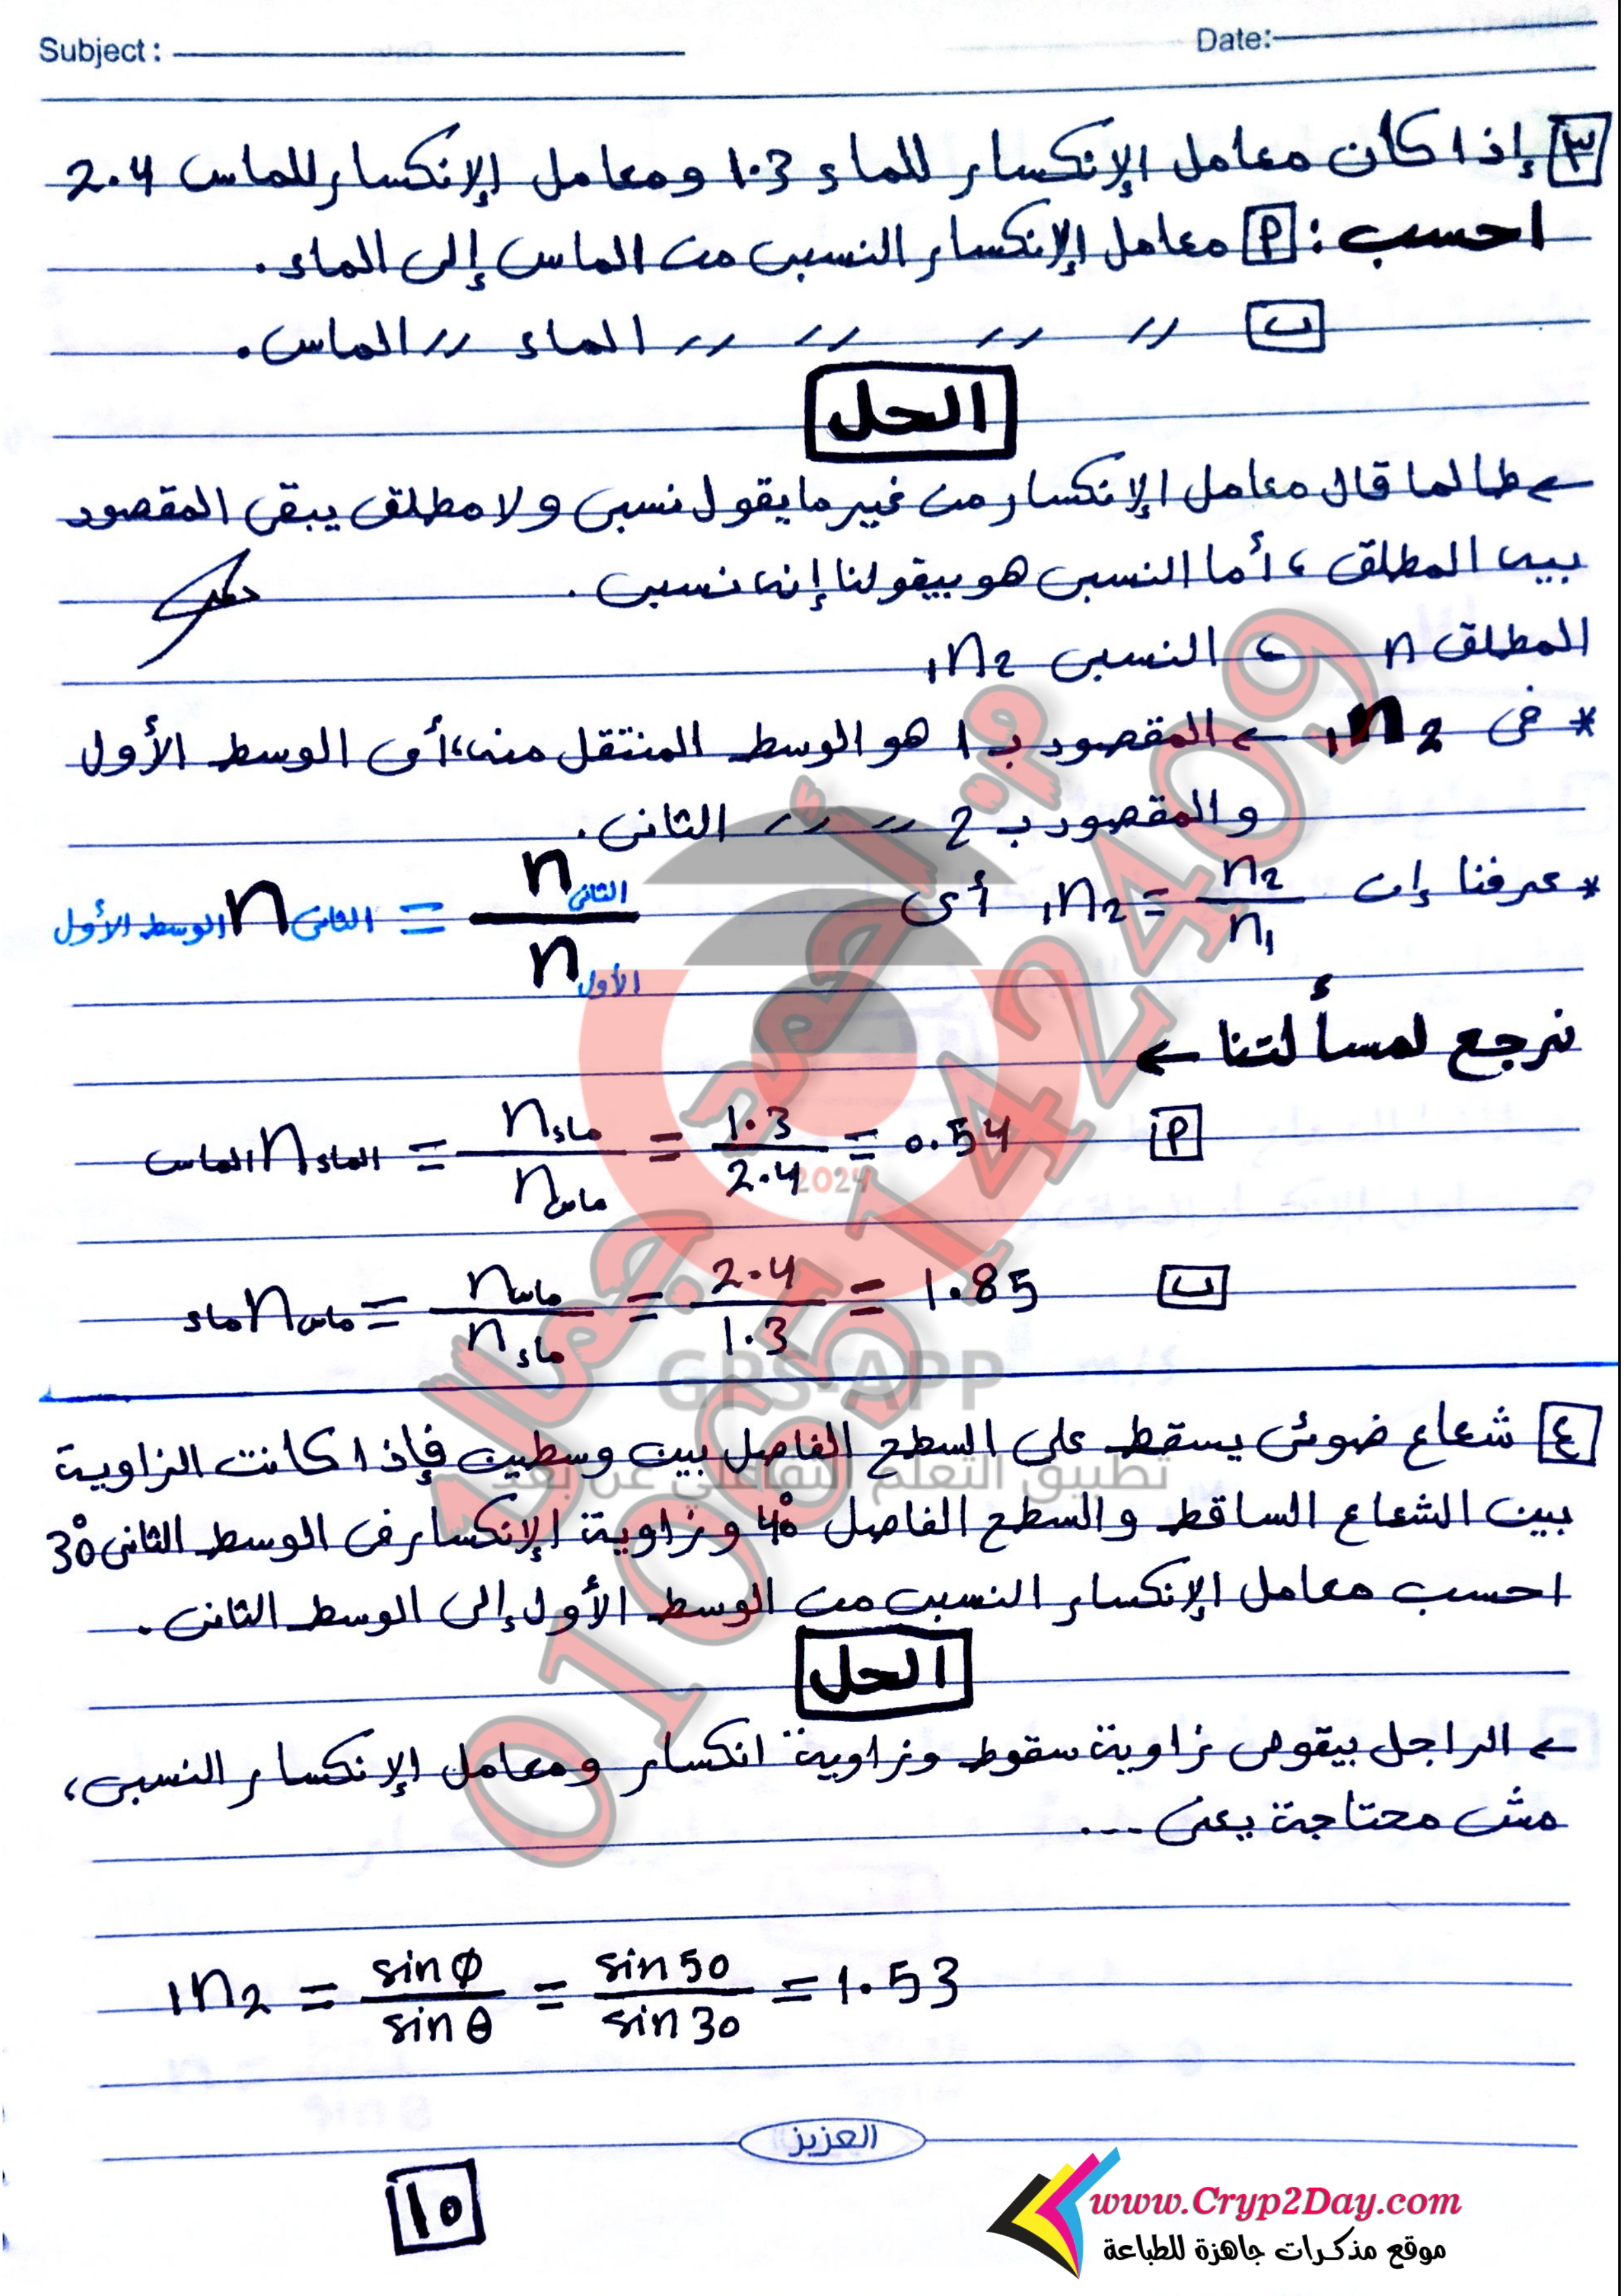 Subject: Date:
٣ إذا كان معامل الإنكسار للماء 1.3 ومعامل الإنكسار للماس 2.4
احسب: أ معامل الإنكسار النسبى من الماس إلى الماء.
ب 〃 〃 〃 〃 الماء 〃 الماس.
الحل
← طالما قال معامل الإنكسار من غير ما يقول نسبى ولا مطلق يبقى المقصود
بيه المطلق، أما النسبى هو بيقولنا إنه نسبى.
المطلق n ، النسبى ₁n₂
* فى ₁n₂ ← المقصود بـ 1 هو الوسط المنتقل منه، أى الوسط الأول
والمقصود بـ 2 〃 〃 〃 الثانى.
* عرفنا إن ₁n₂ = n₂ / n₁ أى الوسط الأول n الثانى = n الثانى / n الأول
نرجع لمسألتنا ←
أ الماس n الماء = n ماء / n ماس = 1.3 / 2.4 = 0.54
ب ماء n ماس = n ماس / n ماء = 2.4 / 1.3 = 1.85
٤ شعاع ضوئى يسقط على السطح الفاصل بين وسطين فإذا كانت الزاوية
بين الشعاع الساقط والسطح الفاصل 40° وزاوية الإنكسار فى الوسط الثانى 30°
احسب معامل الإنكسار النسبى من الوسط الأول إلى الوسط الثانى.
الحل
← الراجل بيقولى زاوية سقوط وزاوية انكسار ومعامل الإنكسار النسبى،
مش محتاجة يعنى ...
₁n₂ = sin φ / sin θ = sin 50 / sin 30 = 1.53
العزيز
١٥
www.Cryp2Day.com
موقع مذكرات جاهزة للطباعة
م: أحمد جمالا
01065142409
2024
GPS-APP
تطبيق التعلم التفاعلي عن بعد